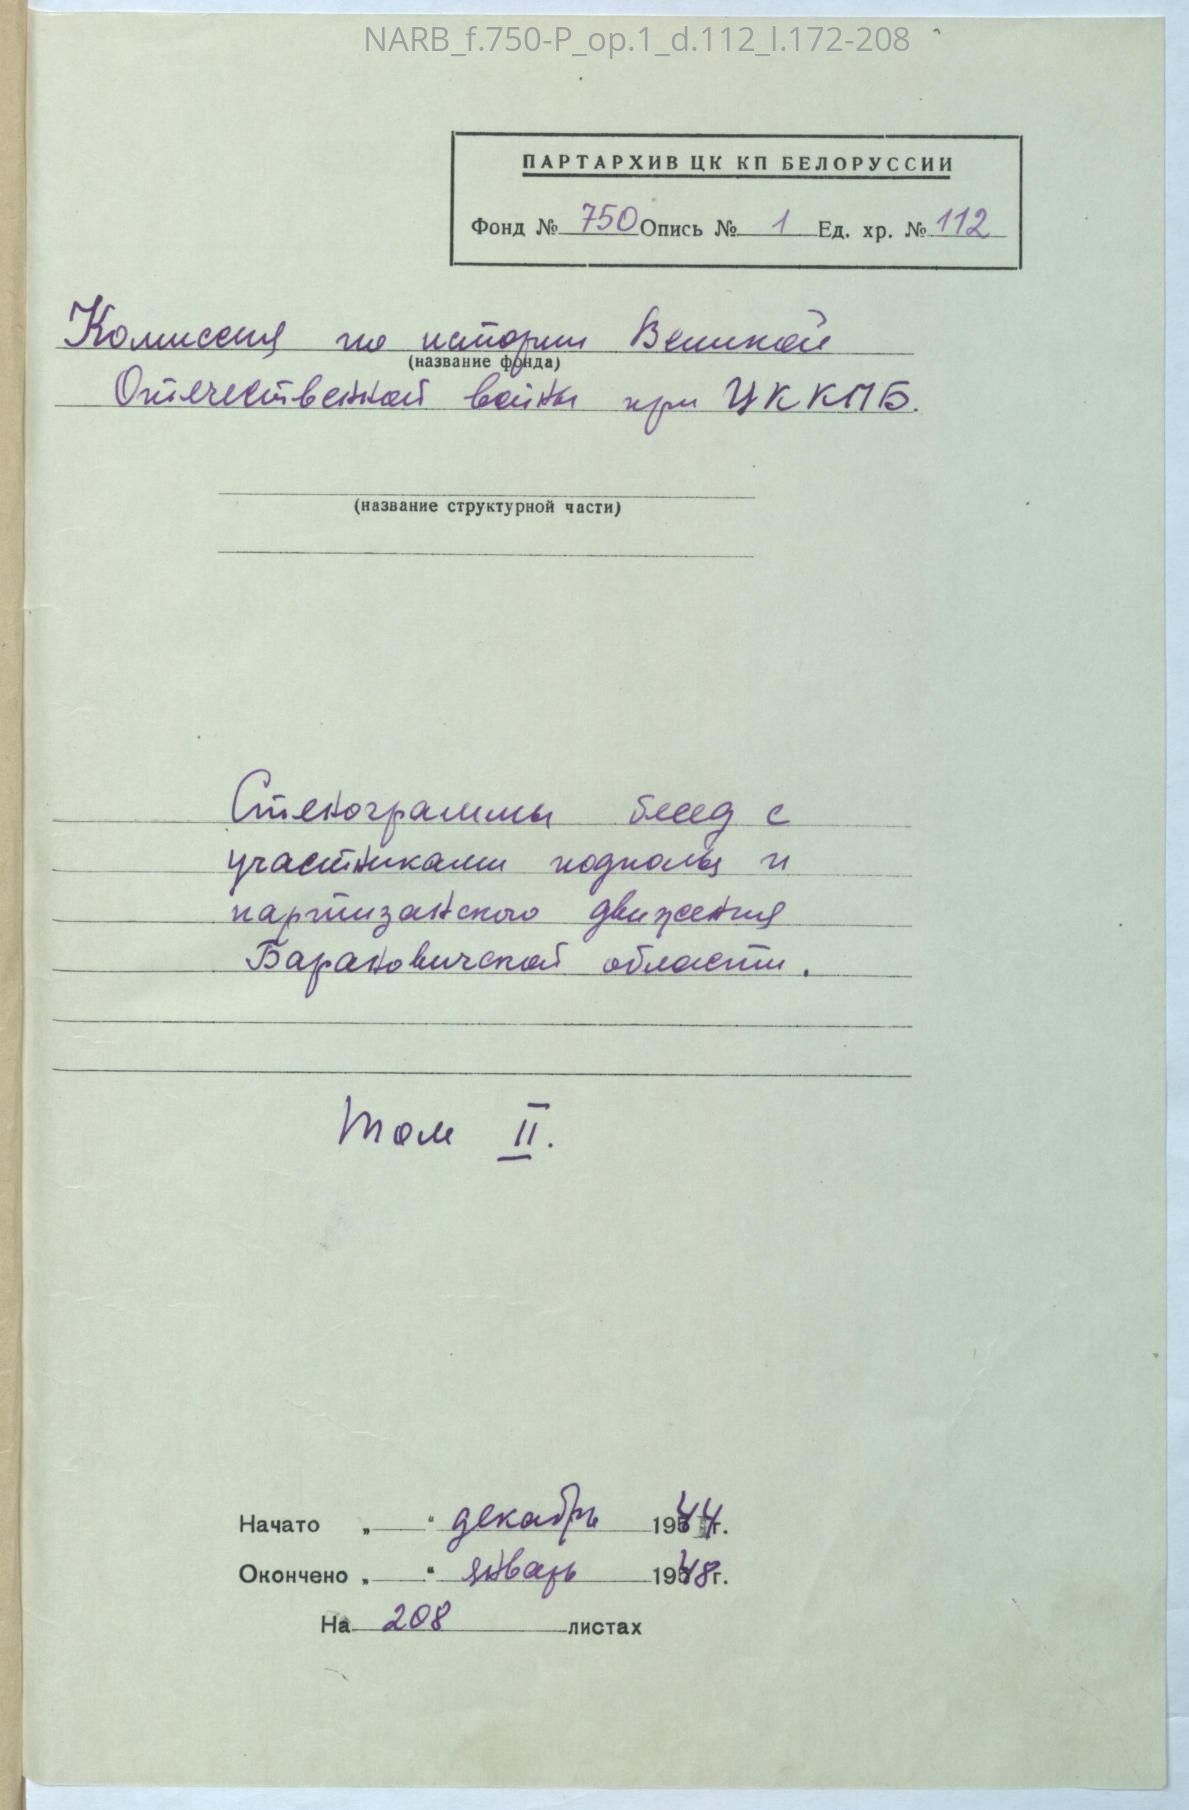 NARB_f.750-P_op.1_d.112_l.172-208
ПАРТАРХИВ ЦК КП БЕЛОРУССИИ
Фонд № 750 Опись № 1 Ед. хр. № 112
Комиссия по истории Великой
(название фонда)
Отечественной войны при ЦК КПБ.
(название структурной части)
Стенограммы бесед с
участниками подполья и
партизанского движения
Барановичской области.
Том II.
Начато „ “ декабрь 1944г.
Окончено „ “ январь 1948г.
На 208 листах